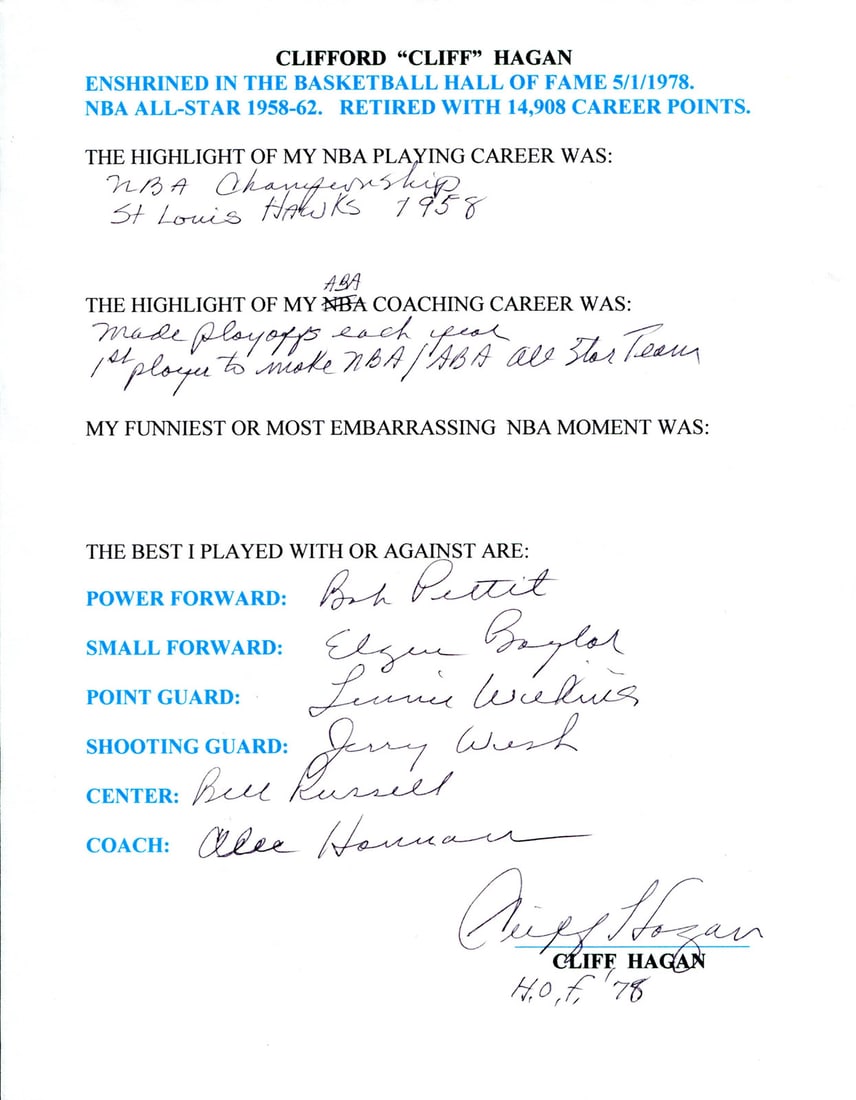 CLIFFORD “CLIFF” HAGAN
ENSHRINED IN THE BASKETBALL HALL OF FAME 5/1/1978.
NBA ALL-STAR 1958-62. RETIRED WITH 14,908 CAREER POINTS.
THE HIGHLIGHT OF MY NBA PLAYING CAREER WAS:
NBA Championship
St Louis HAWKS 1958
ABA
THE HIGHLIGHT OF MY NBA COACHING CAREER WAS:
Made playoffs each year
1st player to make NBA/ABA All Star Team
MY FUNNIEST OR MOST EMBARRASSING NBA MOMENT WAS:
THE BEST I PLAYED WITH OR AGAINST ARE:
POWER FORWARD: Bob Pettit
SMALL FORWARD: Elgin Baylor
POINT GUARD: Lennie Wilkins
SHOOTING GUARD: Jerry West
CENTER: Bill Russell
COACH: Alec Hannan
Cliff Hagan
CLIFF HAGAN
H.O.F. '78